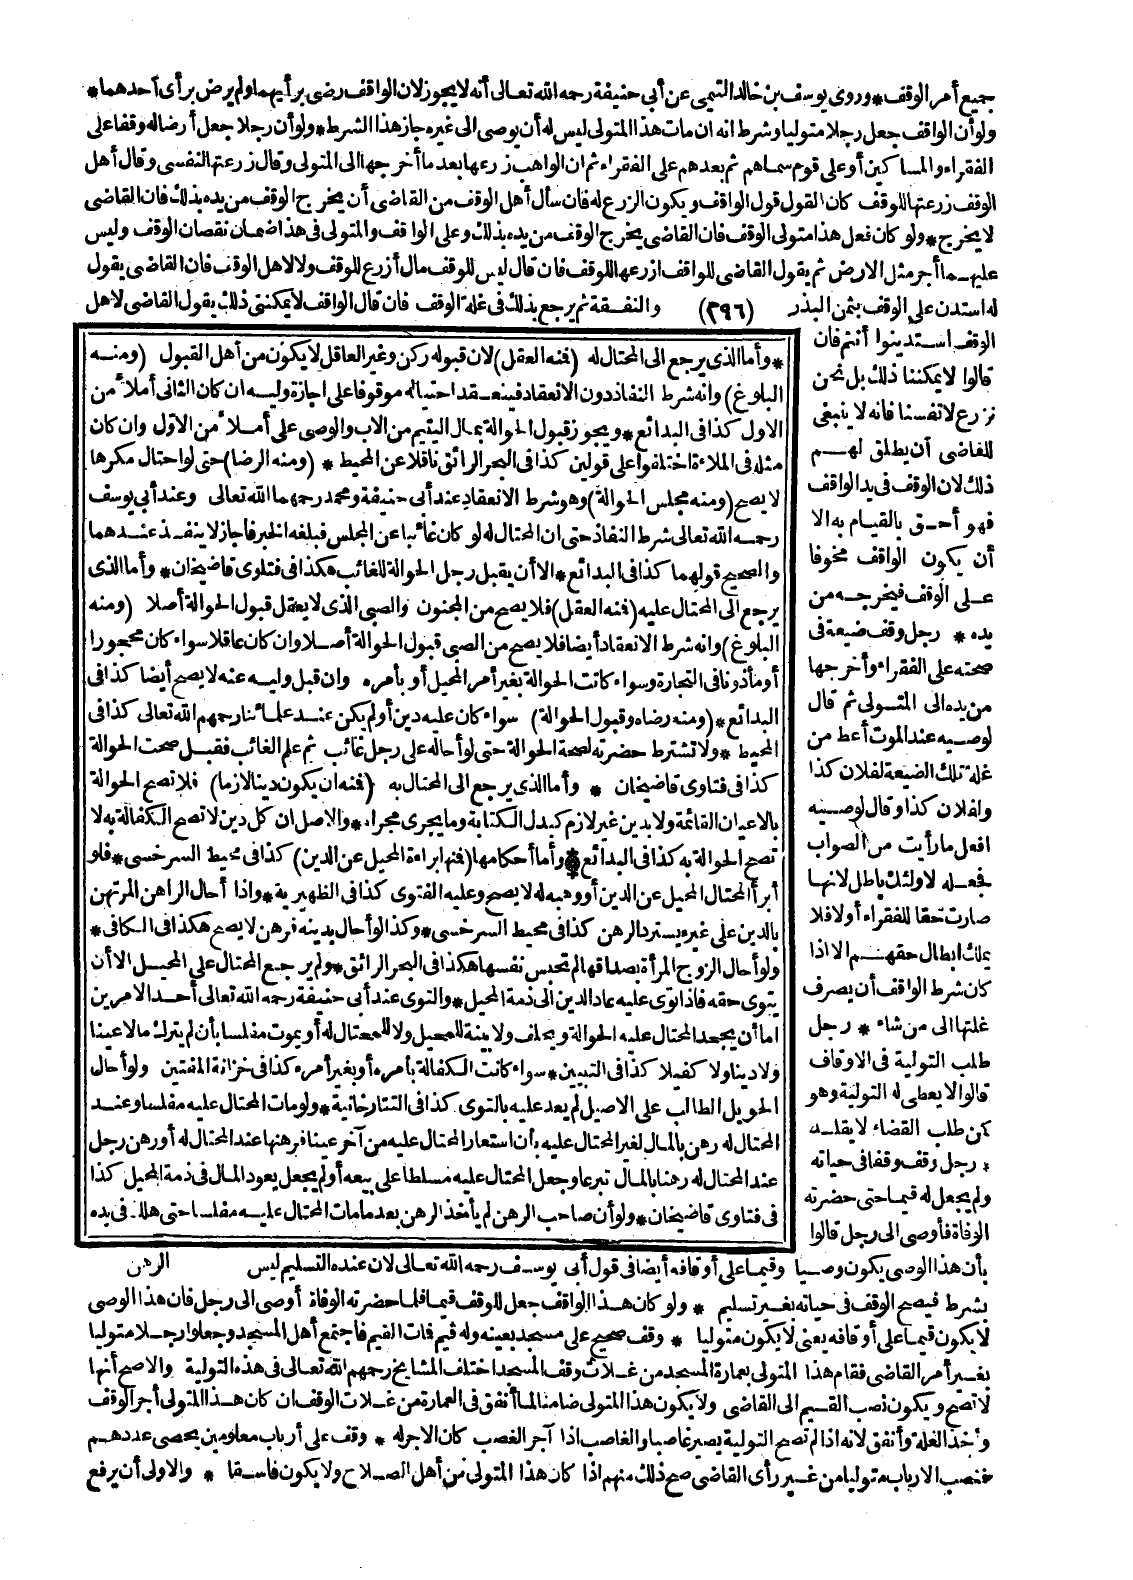 جميع أمر الوقف * وروى يوسف بن خالد التيمي عن أبي حنيفة رحمه الله تعالى أنه لا يجوز لان الواقف رضي برأيهما ولم يرض برأى أحدهما *
ولو أن الواقف جعل رجلا متوليا وشرط انه ان مات هذا المتولى ليس له أن يوصى الى غيره جاز هذا الشرط * ولو أن رجلا جعل أرضا له وقفا على
الفقراء والمساكين أو على قوم سماهم ثم بعدهم على الفقراء ثم ان الواهب زرعها بعد ما أخرجها الى المتولى وقال زرعتها لنفسى وقال أهل
الوقف زرعتها للوقف كان القول قول الواقف ويكون الزرع له فان سأل أهل الوقف من القاضى أن يخرج الوقف من يده بذلك فان القاضى
لا يخرج * ولو كان فعل هذا متولى الوقف فان القاضى يخرج الوقف من يده بذلك وعلى الواقف والمتولى فى هذا ضمان نقصان الوقف وليس
عليهما أجر مثل الارض ثم يقول القاضى للواقف ازرعها للوقف فان قال ليس للوقف مال أزرع للوقف ولا لاهل الوقف فان القاضى يقول
له استدن على الوقف بثمن البذر (٢٩٦) والنفقة ثم يرجع بذلك فى غلة الوقف فان قال الواقف لا يمكننى ذلك يقول القاضى لاهل
الوقف استدينوا أنتم فان
قالوا لا يمكننا ذلك بل نحن
نزرع لانفسنا فانه لا ينبغى
للقاضى أن يطلق لهم
ذلك لان الوقف فى يد الواقف
فهو أحق بالقيام به الا
أن يكون الواقف مخوفا
على الوقف فيخرجه من
يده * رجل وقف ضيعة فى
صحته على الفقراء وأخرجها
من يده الى المتولى ثم قال
لوصيه عند الموت أعط من
غلة تلك الضيعة لفلان كذا
ولفلان كذا وقال لوصيه
افعل ما رأيت من الصواب
فجعله لاولئك باطل لانها
صارت حقا للفقراء أولا فلا
يملك ابطال حقهم الا اذا
كان شرط الواقف أن يصرف
غلتها الى من شاء * رجل
طلب التولية فى الاوقاف
قالوا لا يعطى له التولية وهو
كمن طلب القضاء لا يقلد
* رجل وقف وقفا فى حياته
ولم يجعل له قيما حتى حضرته
الوفاة فأوصى الى رجل قالوا
* وأما الذى يرجع الى المحتال له (فمنه العقل) لان قبوله ركن وغير العاقل لا يكون من أهل القبول (ومنه
البلوغ) وانه شرط النفاذ دون الانعقاد فينعقد احتياله موقوفا على اجازة وليه ان كان الثانى أملأ من
الاول كذا فى البدائع * ويجوز قبول الحوالة بمال اليتيم من الاب والوصى على أملأ من الاول وان كان
مثله فى الملاءة اختلفوا على قولين كذا فى البحر الرائق ناقلا عن المحيط * (ومنه الرضا) حتى لو احتال مكرها
لا يصح (ومنه مجلس الحوالة) وهو شرط الانعقاد عند أبى حنيفة ومحمد رحمهما الله تعالى وعند أبى يوسف
رحمه الله تعالى شرط النفاذ حتى ان المحتال له لو كان غائبا عن المجلس فبلغه الخبر فأجاز لا ينفذ عندهما
والصحيح قولهما كذا فى البدائع * الا أن يقبل رجل الحوالة للغائب هكذا فى فتاوى قاضيخان * وأما الذى
يرجع الى المحتال عليه (فمنه العقل) فلا يصح من المجنون والصبى الذى لا يعقل قبول الحوالة أصلا (ومنه
البلوغ) وانه شرط الانعقاد أيضا فلا يصح من الصبى قبول الحوالة أصلا وان كان عاقلا سواء كان محجورا
أو مأذونا فى التجارة وسواء كانت الحوالة بغير أمر المحيل أو بأمره وان قبل وليه عنه لا يصح أيضا كذا فى
البدائع * (ومنه رضاه وقبول الحوالة) سواء كان عليه دين أو لم يكن عند علمائنا رحمهم الله تعالى كذا فى
المحيط * ولا تشترط حضرته لصحة الحوالة حتى لو أحاله على رجل غائب ثم علم الغائب فقبل صحت الحوالة
كذا فى فتاوى قاضيخان * وأما الذى يرجع الى المحتال به (فمنه ان يكون دينا لازما) فلا تصح الحوالة
بالاعيان القائمة ولا بدين غير لازم كبدل الكتابة وما يجرى مجراه * والاصل ان كل دين لا تصح الكفالة به لا
تصح الحوالة به كذا فى البدائع * وأما أحكامها (فمنها براءة المحيل عن الدين) كذا فى محيط السرخسى * فلو
أبرأ المحتال المحيل عن الدين أو وهبه له لا يصح وعليه الفتوى كذا فى الظهيرية * واذا أحال الراهن المرتهن
بالدين على غيره يسترد الرهن كذا فى محيط السرخسى * وكذا لو أحال بدينه فرهن لا يصح هكذا فى الكافى *
ولو أحال الزوج المرأة بصداقها لم تحبس نفسها هكذا فى البحر الرائق * ولم يرجع المحتال على المحيل الا أن
يتوى حقه فاذا توى عليه عاد الدين الى ذمة المحيل * والتوى عند أبى حنيفة رحمه الله تعالى أحد الامرين
اما أن يجحد المحتال عليه الحوالة ويحلف ولا بينة للمحيل ولا للمحتال له أو يموت مفلسا بأن لم يترك مالا عينا
ولا دينا ولا كفيلا كذا فى التبيين * سواء كانت الكفالة بأمره أو بغير أمره كذا فى خزانة المفتين ولو أحال
الحويل الطالب على الاصيل لم يعد عليه بالتوى كذا فى التتارخانية * ولو مات المحتال عليه مفلسا وعند
المحتال له رهن بالمال لغير المحتال عليه بأن استعار المحتال عليه من آخر عينا فرهنها عند المحتال له أو رهن رجل
عند المحتال له رهنا بالمال تبرعا وجعل المحتال عليه مسلطا على بيعه أو لم يجعل يعود المال فى ذمة المحيل كذا
فى فتاوى قاضيخان * ولو أن صاحب الرهن لم يأخذ الرهن بعد ما مات المحتال عليه مفلسا حتى هلك فى يده
الرهن
بأن هذا الوصى يكون وصيا وقيما على أوقافه أيضا فى قول أبى يوسف رحمه الله تعالى لان عنده التسليم ليس
بشرط فيصح الوقف فى حياته بغير تسليم * ولو كان هذا الواقف جعل للوقف قيما فلما حضرته الوفاة أوصى الى رجل فان هذا الوصى
لا يكون قيما على أوقافه يعنى لا يكون متوليا * وقف صحيح على مسجد بعينه وله قيم فمات القيم فاجتمع أهل المسجد وجعلوا رجلا متوليا
بغير أمر القاضى فقام هذا المتولى بعمارة المسجد من غلات وقف المسجد اختلف المشايخ رحمهم الله تعالى فى هذه التولية والاصح أنها
لا تصح ويكون نصب القيم الى القاضى ولا يكون هذا المتولى ضامنا لما أنفق فى العمارة من غلات الوقف ان كان هذا المتولى أجر الوقف
وأخذ الغلة وأنفق لانه اذا لم تصح التولية يصير غاصبا والغاصب اذا آجر الغصب كان الاجر له * وقف على أرباب معلومين يحصى عددهم
فنصب الارباب متوليا من غير رأى القاضى صح ذلك منهم اذا كان هذا المتولى من أهل الصلاح ولا يكون فاسقا * والاولى أن يرفع